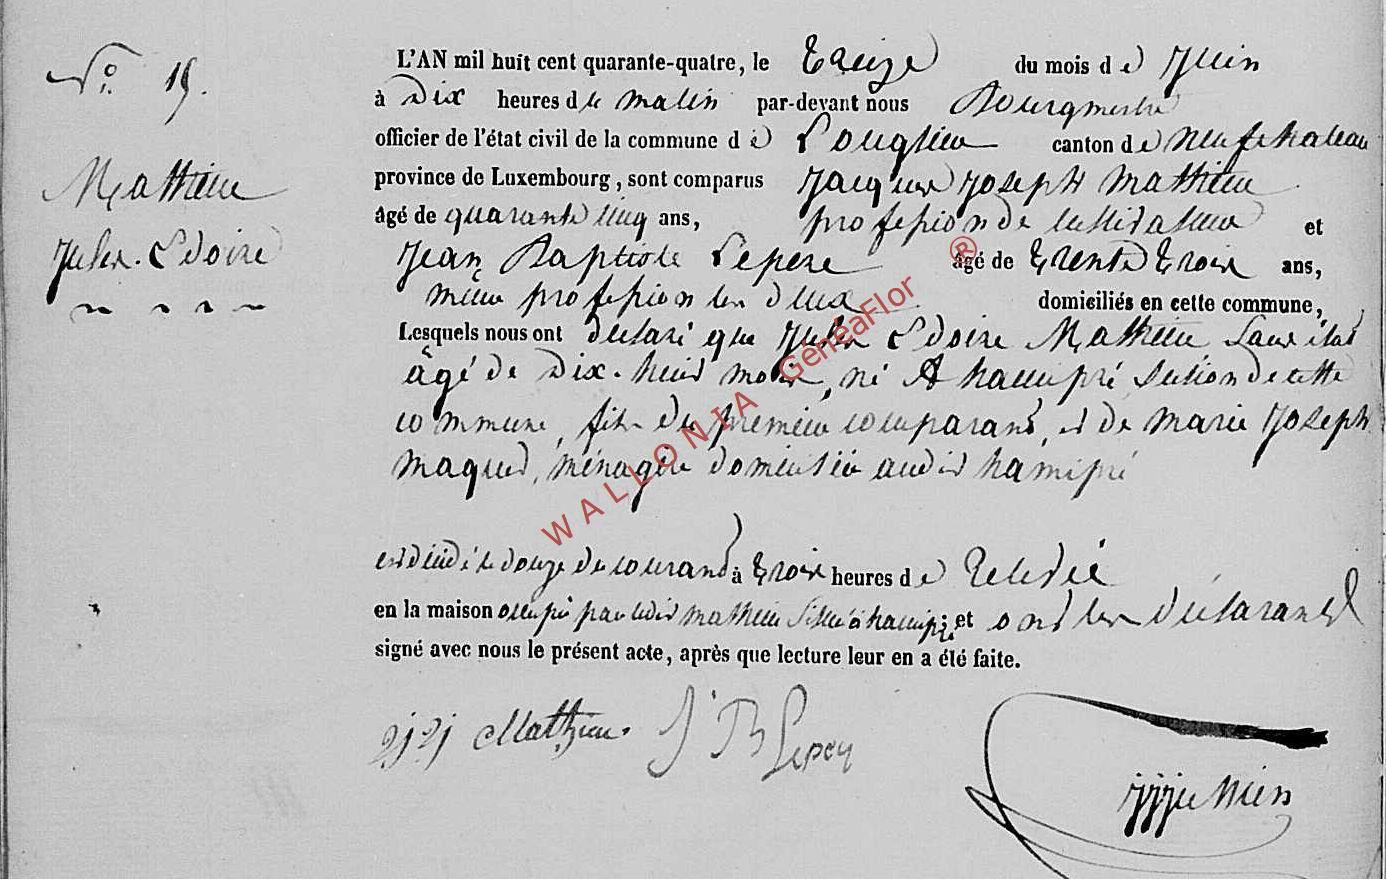 N°. 15.
Mathieu
Jules. Edoire
L'AN mil huit cent quarante-quatre, le treize du mois de Juin
à Dix heures du matin par-devant nous Bourgmestre
officier de l'état civil de la commune de Longlier canton de neufchateau
province de Luxembourg, sont comparus Jacques Joseph Mathieu
âgé de quarante cinq ans, profession de cultivateur et
Jean Baptiste Lepere âgé de trente trois ans,
même profession les deux domiciliés en cette commune,
Lesquels nous ont déclaré que Jules Edoire Mathieu sans état
âgé de Dix-huit mois, né A hamipré section de cette
commune, fils du premier comparant, et de marie Joseph
maquet, ménagère domiciliée audit hamipré
est décédé le douze du courant à trois heures de relevée
en la maison occupée par ledit mathieu située à hamipré; et ont les déclarants
signé avec nous le présent acte, après que lecture leur en a été faite.
JJ Mathieu. J B Leper
WALLONIA GenéaFlor ®